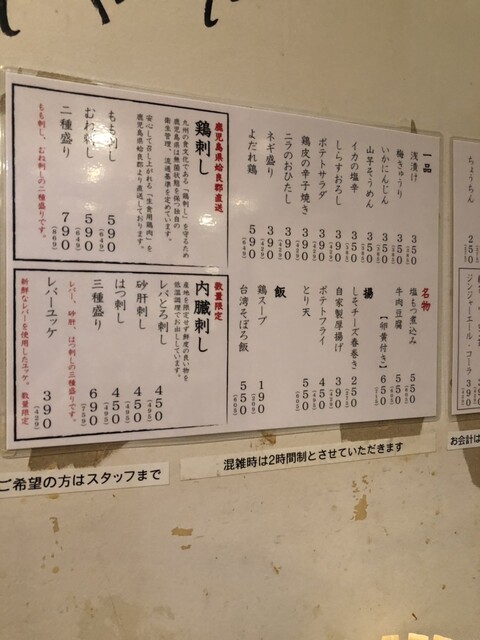 一品
浅漬け 350
梅きゅうり 350
いかにんじん 350
山芋そうめん 350
イカの塩辛 350
しらすおろし 350
ポテトサラダ 390
鶏皮の辛子焼き 390
ニラのおひたし 390
ネギ盛り 390
よだれ鶏 590
名物
塩もつ煮込み 550
牛肉豆腐 550
【卵黄付き】 650
揚
しそチーズ春巻き 250
自家製厚揚げ 390
ポテトフライ 450
とり天 550
飯
鶏スープ 190
台湾そぼろ飯 550
鹿児島県姶良郡直送
鶏刺し
九州の食文化である「鶏刺し」を守るため
鹿児島県は無菌状態を保つ独自の
衛生管理、流通基準を定めています。
安心して召し上がれる「生食用鶏肉」を
鹿児島県姶良郡より直送しております。
もも刺し 590
(649)
むね刺し 590
(649)
二種盛り 790
(869)
もも刺し、むね刺しの二種盛りです。
数量限定
内臓刺し
産地を限定せず鮮度の良い物を
低温調理でお出ししています。
レバとろ刺し 450
(495)
砂肝刺し 450
(495)
はつ刺し 450
(495)
三種盛り 690
(759)
レバー、砂肝、はつ刺しの三種盛りです。
レバーユッケ 390
(429)
新鮮なレバーを使用したユッケ。数量限定
ちょうちん 250
ジンジャーエール・コーラ 390
お会計は
混雑時は2時間制とさせていただきます
ご希望の方はスタッフまで